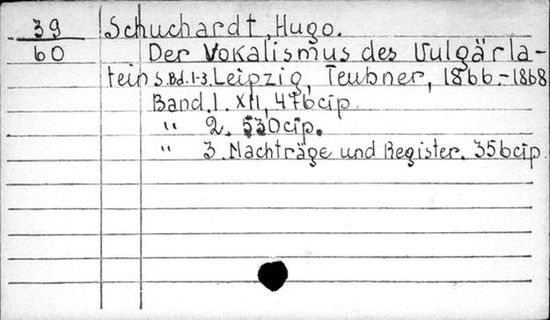 39 Schuchardt, Hugo.
60 Der Vokalismus des Vulgärla-
teins. Bd. 1-3. Leipzig, Teubner, 1866.-1868
Band. 1. XII, 476 cтр
" 2. 530 cтр.
" 3. Nachträge und Register. 356 cтр